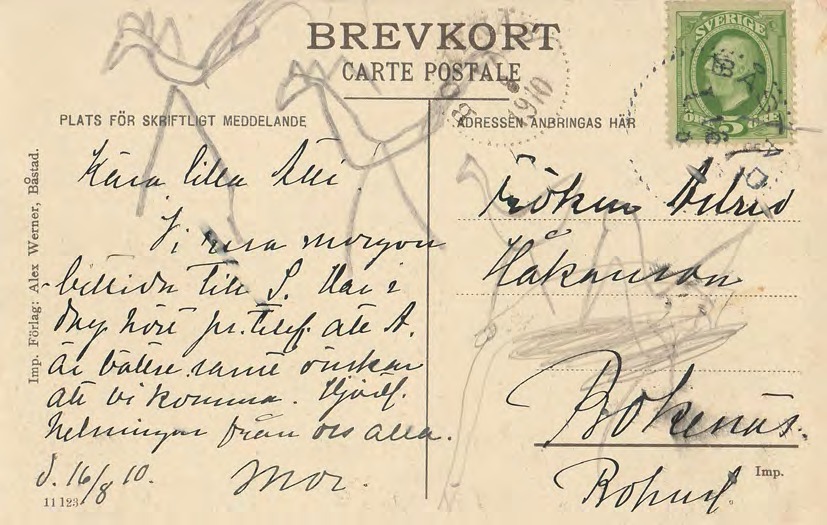 BREVKORT
CARTE POSTALE
PLATS FÖR SKRIFTLIGT MEDDELANDE
ADRESSEN ANBRINGAS HÄR
SVERIGE
5
ÖRE
BÅSTAD
1910
Imp. Förlag: Alex Werner, Båstad.
Kära lilla
Vi resa morgon
bittida till S. Har i
dag hört pr. telef. att A.
är bättre samt önskar
att vi komma. Hjärtl.
helsningar från oss alla.
d. 16/8 10. Mor.
11123
Fröken Astrid
Håkanson
Bokenäs.
Bohusl.
Imp.